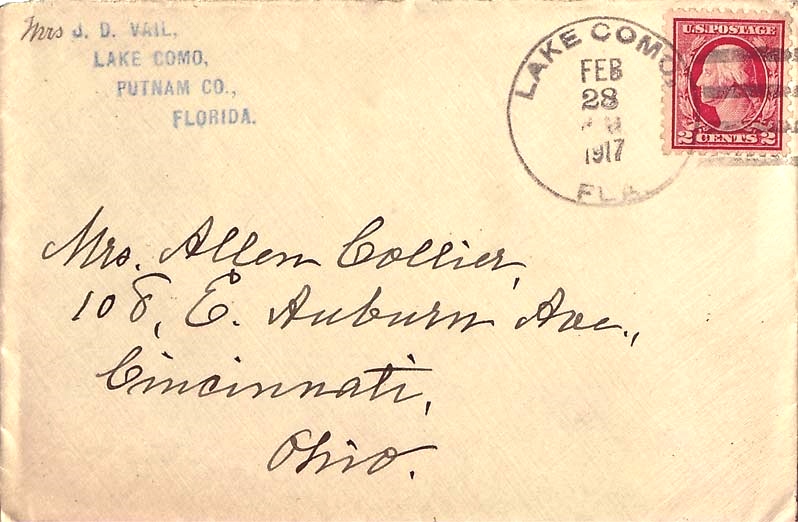 Mrs J. D. VAIL,
LAKE COMO,
PUTNAM CO.,
FLORIDA.
LAKE COMO,
FEB
28
1917
FLA.
U.S. POSTAGE
2 CENTS 2
Mrs. Allen Collier,
108, E. Auburn Ave.,
Cincinnati,
Ohio.